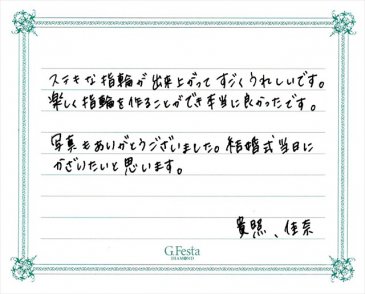 ステキな指輪が出来上がってすごくうれしいです。
楽しく指輪を作ることができ本当に良かったです。
写真もありがとうございました。結婚式当日に
かざりたいと思います。
貴照、佳奈
G.Festa
DIAMOND